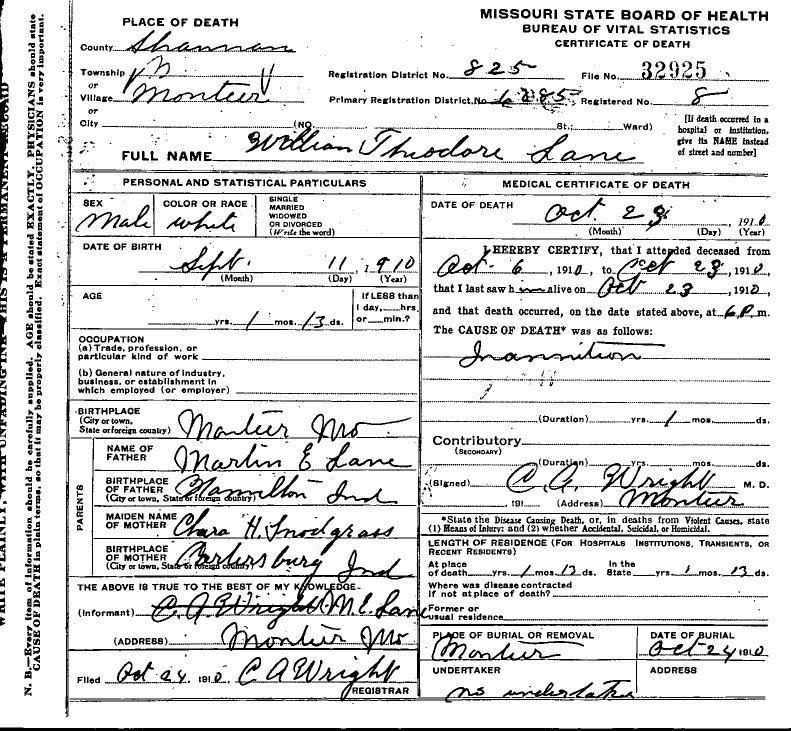 MISSOURI STATE BOARD OF HEALTH
BUREAU OF VITAL STATISTICS
CERTIFICATE OF DEATH
PLACE OF DEATH
County Shannon
Township
or
Village Montier
or
City (NO. St.; Ward)
Registration District No. 825 File No. 32925
Primary Registration District No. Registered No. 8
[If death occurred in a hospital or institution, give its NAME instead of street and number]
FULL NAME William Theodore Lane
PERSONAL AND STATISTICAL PARTICULARS
SEX Male
COLOR OR RACE white
SINGLE
MARRIED
WIDOWED
OR DIVORCED
(Write the word)
DATE OF BIRTH
Sept. 11, 1910
(Month) (Day) (Year)
AGE
yrs. 1 mos. 13 ds.
If LESS than
1 day, hrs
or min.?
OCCUPATION
(a) Trade, profession, or
particular kind of work
(b) General nature of industry,
business, or establishment in
which employed (or employer)
BIRTHPLACE
(City or town,
State or foreign country) Montier Mo
PARENTS
NAME OF
FATHER Martin E Lane
BIRTHPLACE
OF FATHER
(City or town, State or foreign country) Hamilton Ind
MAIDEN NAME
OF MOTHER Clara H. Snodgrass
BIRTHPLACE
OF MOTHER
(City or town, State or foreign country) Ind
THE ABOVE IS TRUE TO THE BEST OF MY KNOWLEDGE
(Informant) C. A. Wright M. E. Lane
(ADDRESS) Montier Mo
Filed Oct 24, 1910 C A Wright
REGISTRAR
MEDICAL CERTIFICATE OF DEATH
DATE OF DEATH
Oct. 23, 1910
(Month) (Day) (Year)
I HEREBY CERTIFY, that I attended deceased from
Oct. 6, 1910, to Oct 23, 1910,
that I last saw h im alive on Oct 23, 1910,
and that death occurred, on the date stated above, at 6 P m.
The CAUSE OF DEATH* was as follows:
Inannition
(Duration) yrs. 1 mos. ds.
Contributory
(SECONDARY)
(Duration) yrs. mos. ds.
(Signed) C. A. Wright M. D.
191 (Address) Montier
*State the Disease Causing Death, or, in deaths from Violent Causes, state
(1) Means of Injury; and (2) whether Accidental, Suicidal, or Homicidal.
LENGTH OF RESIDENCE (For Hospitals Institutions, Transients, or
Recent Residents)
At place
of death yrs. 1 mos. 13 ds.
In the
State yrs. 1 mos. 13 ds.
Where was disease contracted
if not at place of death?
Former or
usual residence
PLACE OF BURIAL OR REMOVAL
Montier
DATE OF BURIAL
Oct 24 1910
UNDERTAKER
no undertaker
ADDRESS
WRITE PLAINLY, WITH UNFADING INK—THIS IS A PERMANENT RECORD
N. B.—Every item of information should be carefully supplied. AGE should be stated EXACTLY. PHYSICIANS should state
CAUSE OF DEATH in plain terms, so that it may be properly classified. Exact statement of OCCUPATION is very important.